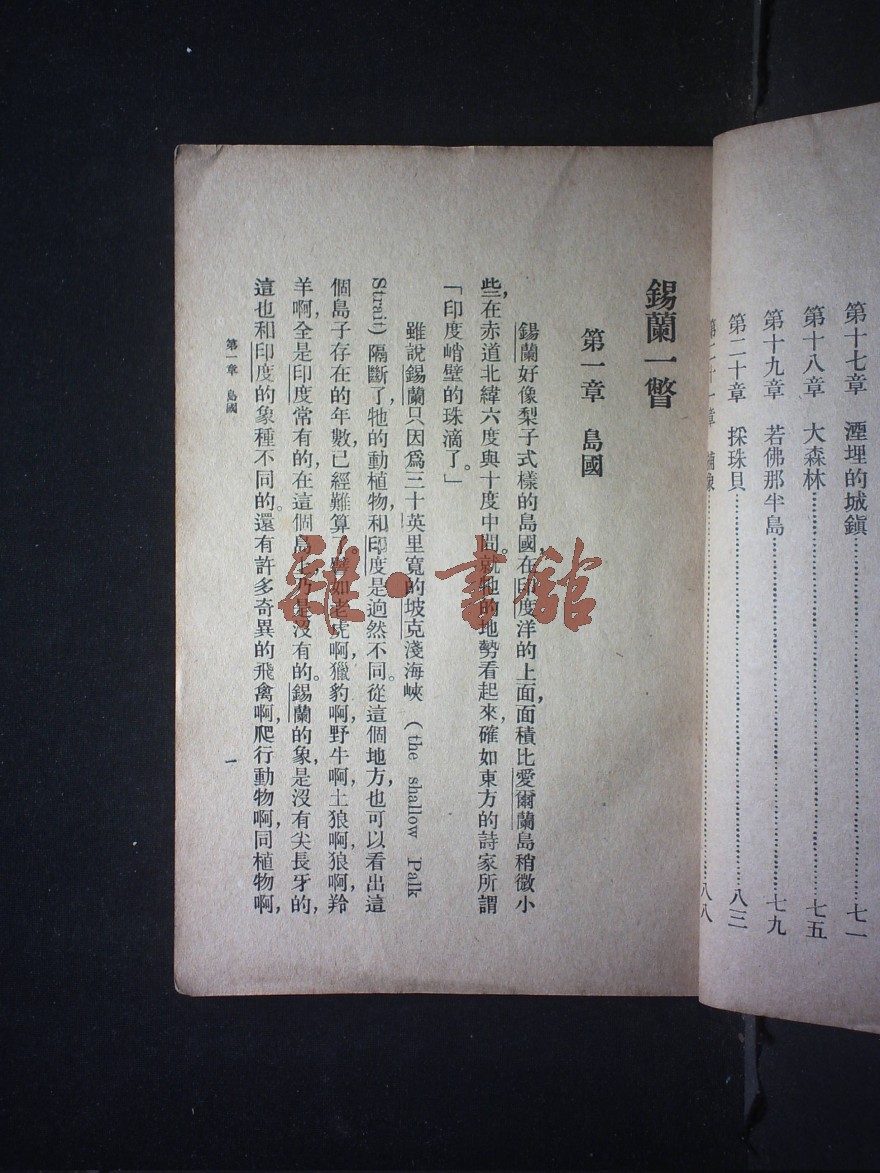 第十七章　湮埋的城鎭……七一
第十八章　大森林……七五
第十九章　若佛那半島……七九
第二十章　採珠貝……八三
第二十一章　捕象……八八
錫蘭一瞥
第一章　島國
錫蘭好像梨子式樣的島國，在印度洋的上面，面積比愛爾蘭島稍微小
些，在赤道北緯六度與十度中間。就牠的地勢看起來，確如東方的詩家所謂
「印度峭壁的珠滴了。」
雖說錫蘭只因爲三十英里寬的坡克淺海峽 (the shallow Palk
Strait) 隔斷了，牠的動植物和印度是逈然不同。從這個地方，也可以看出這
個島子存在的年數，已經難算了。譬如老虎啊，獵豹啊，野牛啊，土狼啊，狼啊，羚
羊啊，全是印度常有的，在這個島上，乃是沒有的。錫蘭的象，是沒有尖長牙的，
這也和印度的象種不同的。還有許多奇異的飛禽啊，爬行動物啊，同植物啊，
第一章　島國
一
雜·書館